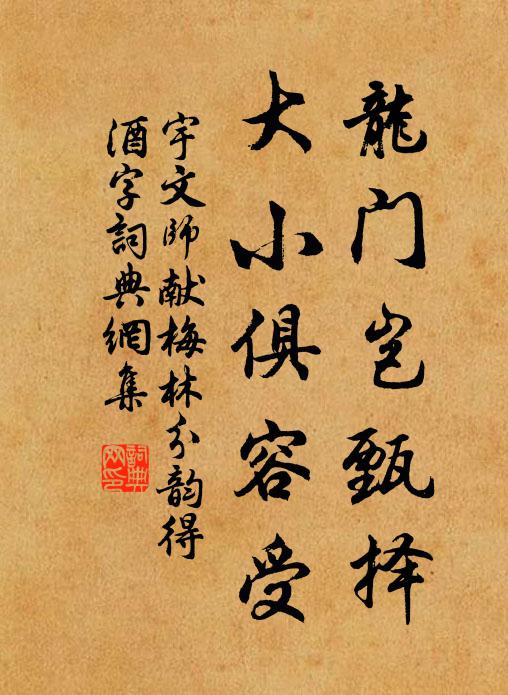 龍门岂甄择
大小俱容受
宇文师献梅林分韵得
酒字詞典網集
詞典网印